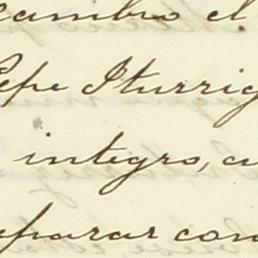 cambio el
Pepe Iturrig
integro, cu
eparar con